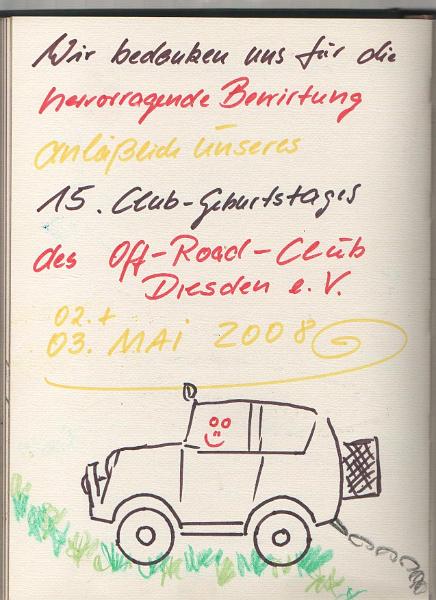 Wir bedanken uns für die
hervorragende Bewirtung
anläßlich unseres
15. Club-Geburtstages
des Off-Road-Club
Dresden e.V.
02.+
03. MAi 2008